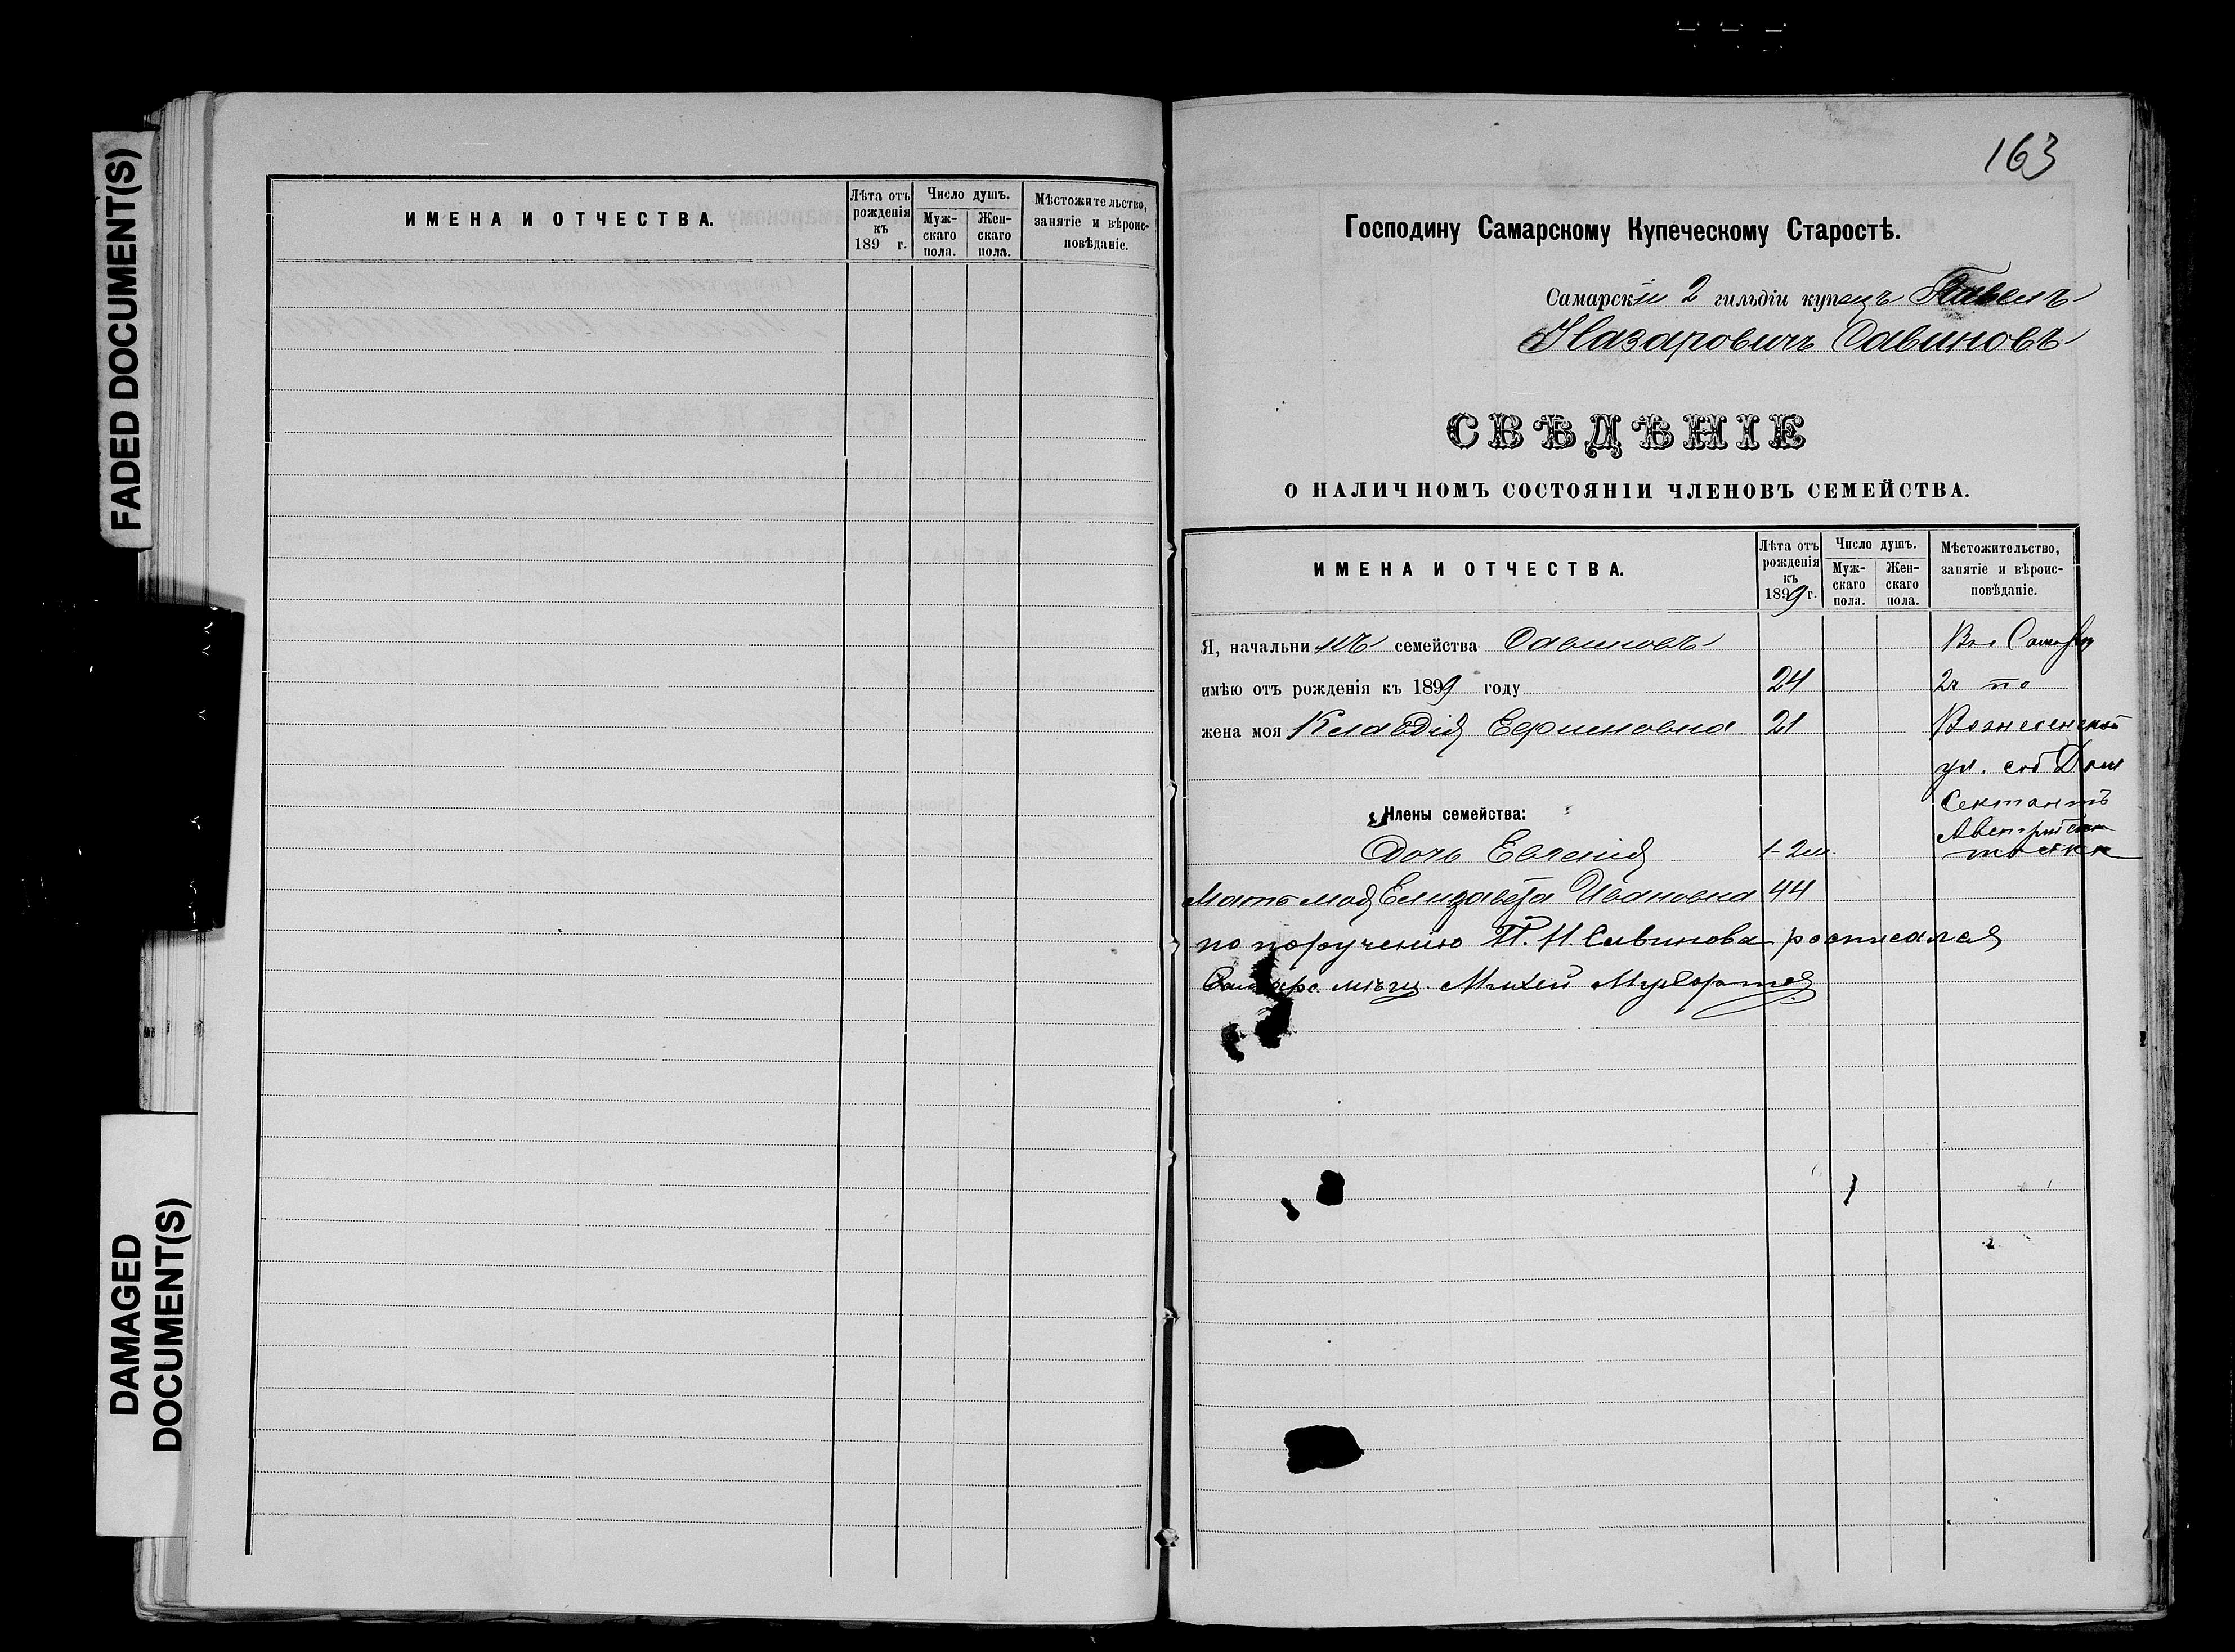 FADED DOCUMENT(S)
DAMAGED
DOCUMENT(S)
ИМЕНА И ОТЧЕСТВА.
Лѣта отъ
рожденія
къ
189 г.
Число душъ.
Муж-
скаго
пола.
Жен-
скаго
пола.
Мѣстожительство,
занятіе и вѣроис-
повѣданіе.
163
Господину Самарскому Купеческому Старостѣ.
Самарскій 2 гильдіи купецъ Павелъ
Назаровичъ Савиновъ
СВѢДѢНІЕ
О НАЛИЧНОМЪ СОСТОЯНІИ ЧЛЕНОВЪ СЕМЕЙСТВА.
ИМЕНА И ОТЧЕСТВА.
Лѣта отъ
рожденія
къ
1899 г.
Число душъ.
Муж-
скаго
пола.
Жен-
скаго
пола.
Мѣстожительство,
занятіе и вѣроис-
повѣданіе.
Я, начальникъ семейства Савиновъ
имѣю отъ рожденія къ 1899 году 24 2ч по
жена моя Клавдія Ефимовна 21 Вознесенской
ул. соб Дом
Сектантъ
Члены семейства:
Австрійск
Дочь Евгенія 1-2м.
толка
Мать моя Елизавета Ивановна 44
по порученію П. Н. Савинова росписался
Самарс. мѣщ. Михей